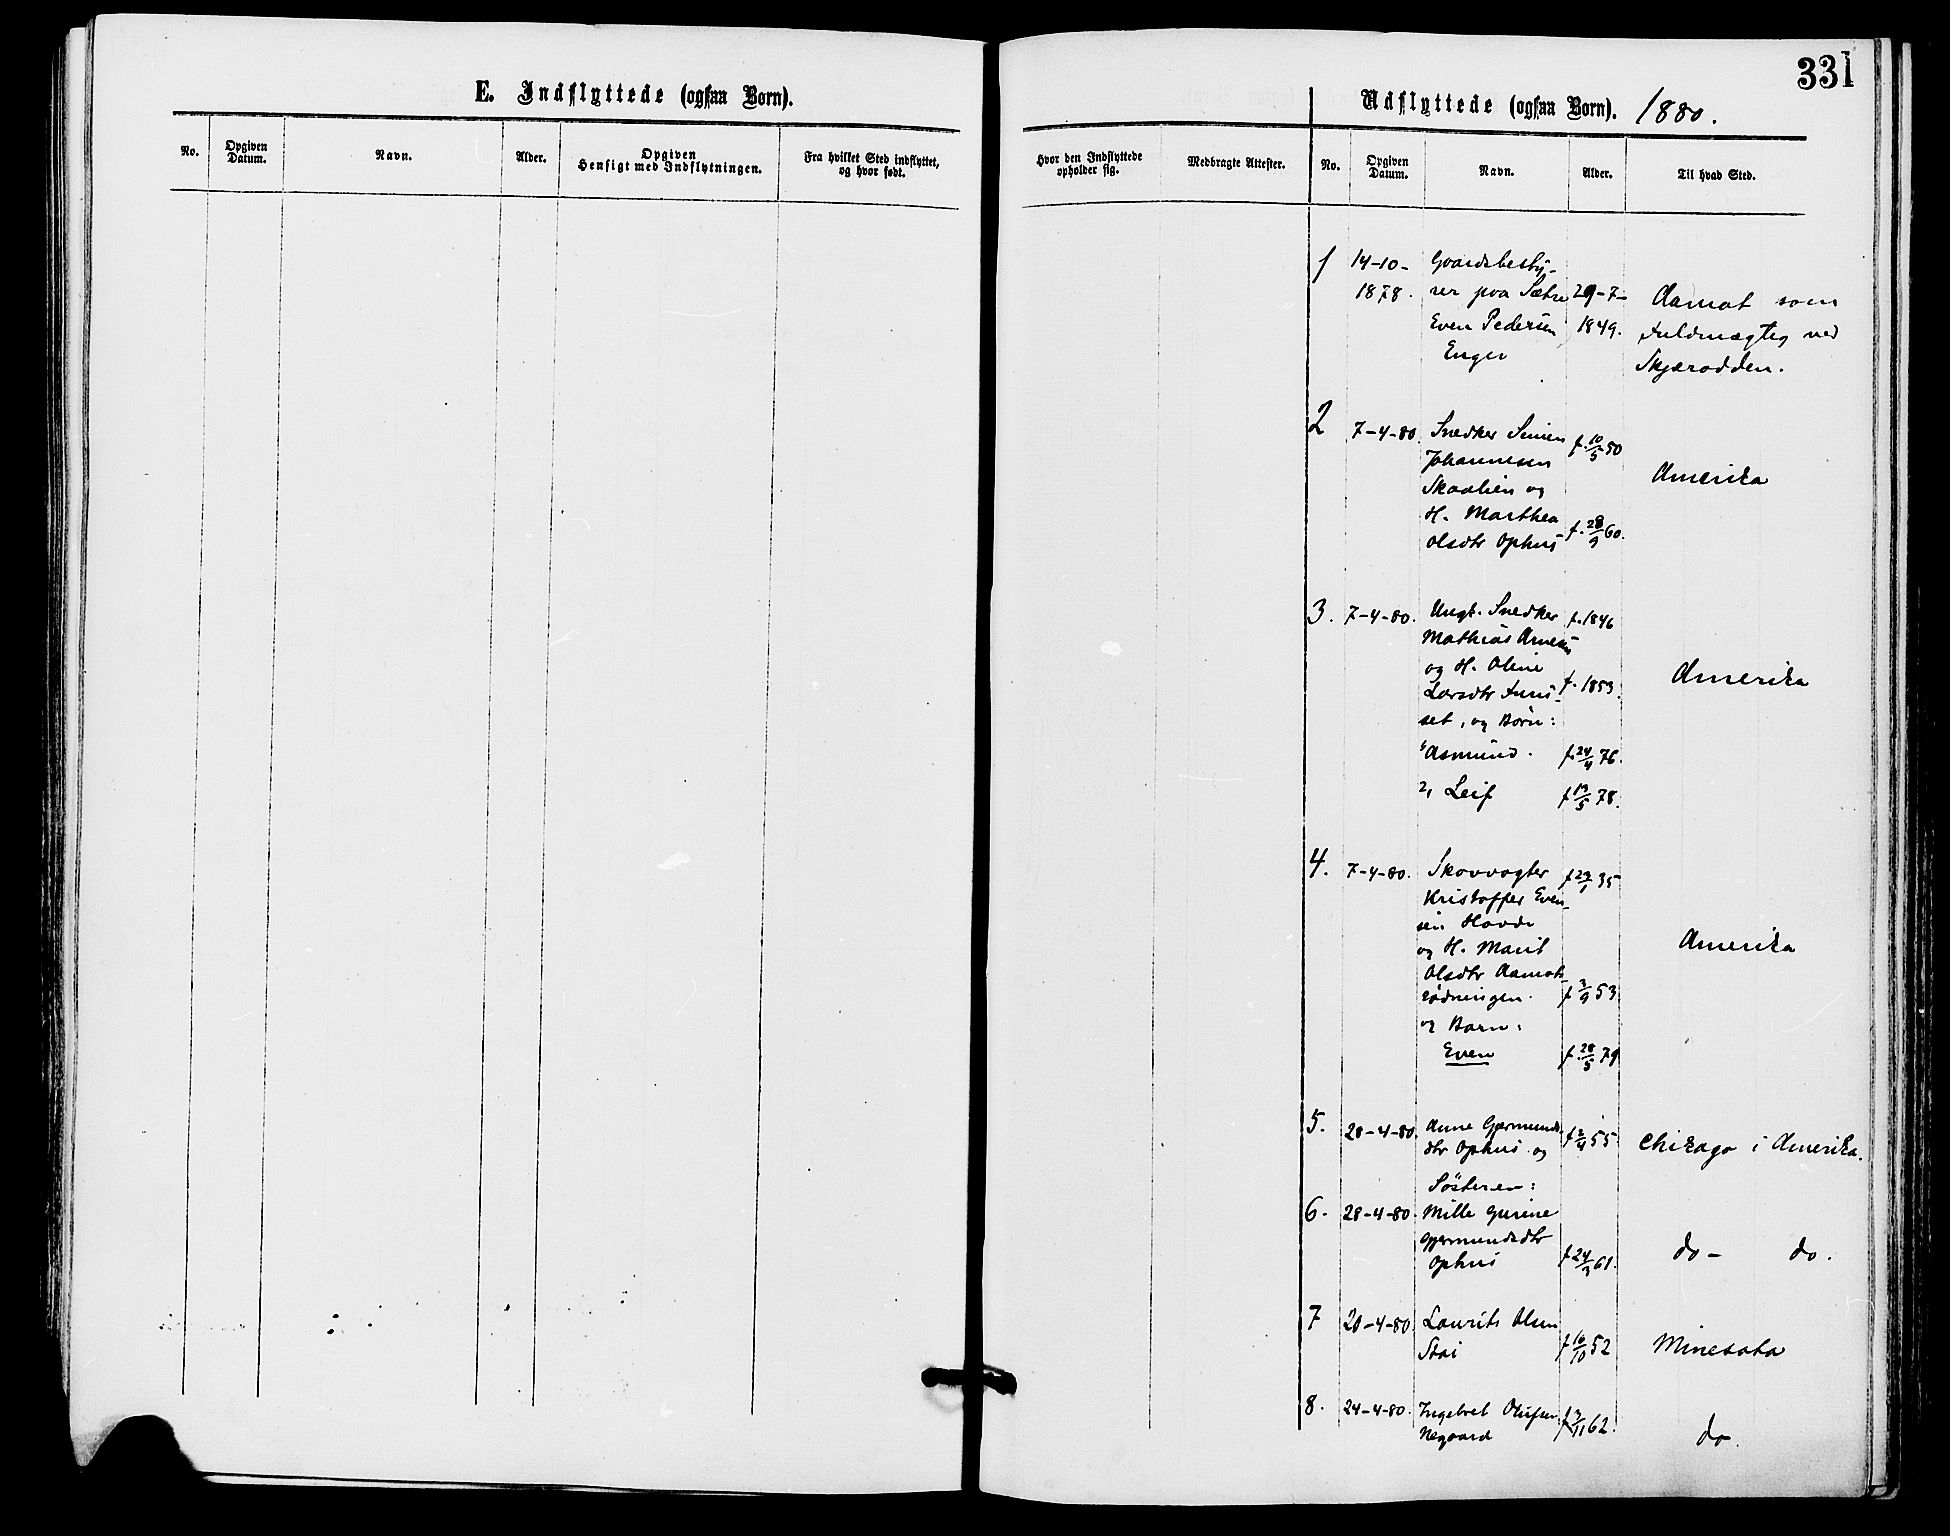 E. Indflyttede (ogsaa Børn).
No.
Opgiven
Datum.
Navn.
Alder.
Opgiven
Hensigt med Indflytningen.
Fra hvilket Sted indflyttet,
og hvor født.
331
Udflyttede (ogsaa Børn). 1880.
Hvor den Indflyttede
opholder sig.
Medbragte Attester.
No.
Opgiven
Datum.
Navn.
Alder.
Til hvad Sted.
1 14-10- Gaardsbesty-
1878. rer paa Sætre 29-7- Aamot som
Even Pedersen 1849. Fuldmægtig ved
Enger Skjærodden.
2 7-4-80. Snedker Simen f. 10/5 50
Johannesen
Skaalien og Amerika
H. Marthea
Olsdtr Ophus f. 28/9 60.
3. 7-4-80. Ungk. Snedker f. 1846
Mathias
og H. Oline
Larsdtr f. 1853. Amerika
set, og Børn:
1, Asmund. f. 24/4 76.
2, Leif f 19/5 78.
4. 7-4-80. Skovvogter f 29/1 35
Kristoffer Even-
sen Hovde
og H. Marit Amerika
Olsdtr Aamots-
rødningen. f 3/9 53
og Barn:
Even f. 28/5 79
5. 28-4-80. Anne Gjermunds-
dtr Ophus og f 2/4 55 Chikago i Amerika.
Søsteren:
6. 28-4-80. Mille Gurine
Gjermundsdtr
Ophus f 24/3 61. do - do.
7 20-4-80. Laurits Olsen
Stai f 16/10 52 Minesota
8. 24-4-80. Ingebret Olufsen
Negaard f 3/11 62. do.